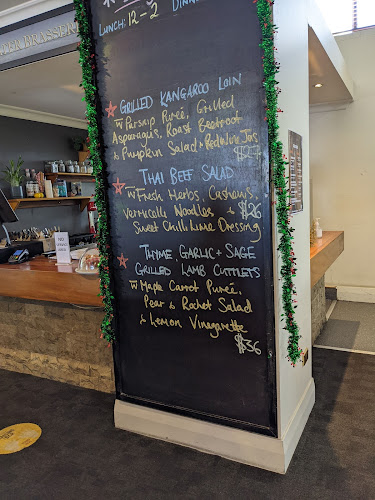 TER BRASSER
LUNCH: 12-2 DINN
GRILLED KANGAROO LOIN
W Parsnip Pureé, Grilled
Asparagus, Roast Beetroot
& Pumpkin Salad & Red Wine Jus
THAI BEEF SALAD
W Fresh Herbs, Cashews,
Vermicelli Noodles & $26
Sweet Chilli Lime Dressing
THYME, GARLIC & SAGE
GRILLED LAMB CUTTLETS
W Maple Carrot Pureé,
Pear & Rocket Salad
& Lemon Vinegarette
$36
NO